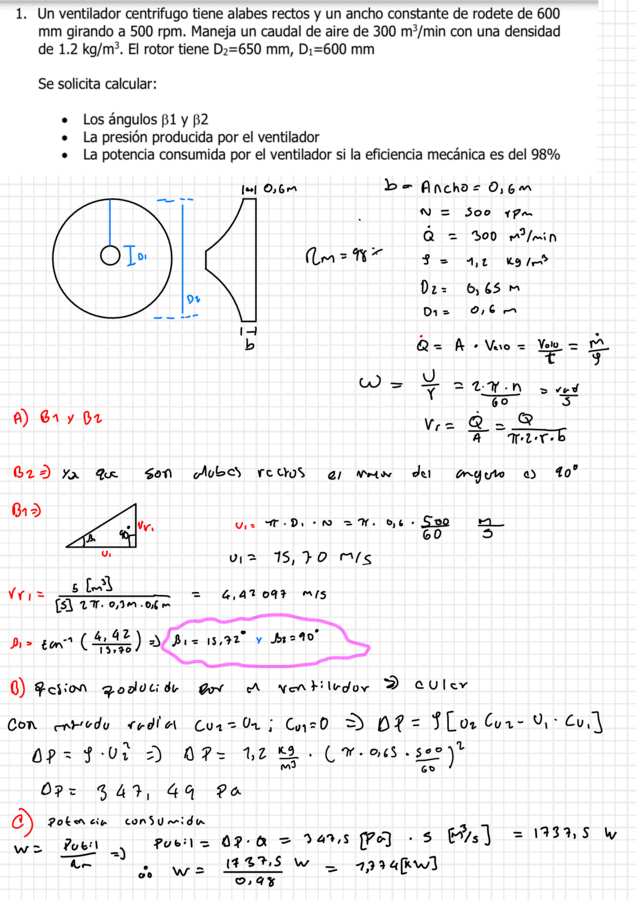 1. Un ventilador centrifugo tiene alabes rectos y un ancho constante de rodete de 600
mm girando a 500 rpm. Maneja un caudal de aire de 300 m³/min con una densidad
de 1.2 kg/m³. El rotor tiene D₂=650 mm, D₁=600 mm
Se solicita calcular:
• Los ángulos β1 y β2
• La presión producida por el ventilador
• La potencia consumida por el ventilador si la eficiencia mecánica es del 98%
0,6m
D1
D2
b
ηm = 98%
b = Ancho = 0,6m
N = 500 rpm
Q̇ = 300 m³/min
ρ = 1,2 kg/m³
D2 = 0,65 m
D1 = 0,6 m
Q̇ = A · Velo = Volu/t = ṁ/ρ
ω = U/r = 2·π·n/60 = rad/s
Vr = Q̇/A = Q/π·2·r·b
A) β1 y β2
β2 => ya que son alabes rectos el valor del angulo es 90°
β1 =>
β1
90°
Vr1
U1
U1 = π · D1 · N = π · 0,6 · 500/60 m/s
U1 = 15,70 m/s
Vr1 = 5 [m³]/[s] 2π · 0,3m · 0,6m = 4,42097 m/s
β1 = tan⁻¹ (4,42/15,70) => β1 = 15,72° y β2 = 90°
B) Presion producida por el ventilador => euler
Con entrada radial Cu2 = U2 ; Cu1 = 0 => ΔP = ρ [U2 Cu2 - U1 · Cu1]
ΔP = ρ · U2² => ΔP = 1,2 kg/m³ · (π · 0,65 · 500/60)²
ΔP = 347,49 Pa
C) Potencia consumida
W = Putil/ηm => Putil = ΔP · Q = 347,5 [Pa] · 5 [m³/s] = 1737,5 W
∴ W = 1737,5/0,98 W = 1,774 [kW]